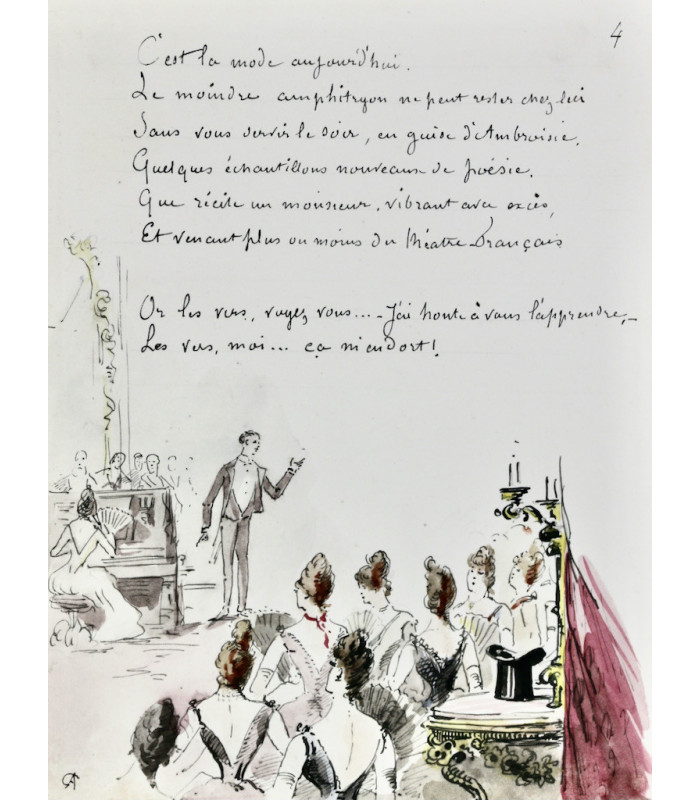 4
C'est la mode aujourd'hui.
Le moindre amphitryon ne peut rester chez lui
Sans vous servir le soir, en guise d'Ambroisie,
Quelques échantillons nouveaux de poésie,
Que récite un monsieur, vibrant avec excès,
Et venant plus ou moins du Théatre-Français
Or les vers, voyez vous... - J'ai honte à vous l'apprendre, -
Les vers, moi... ça m'endort!